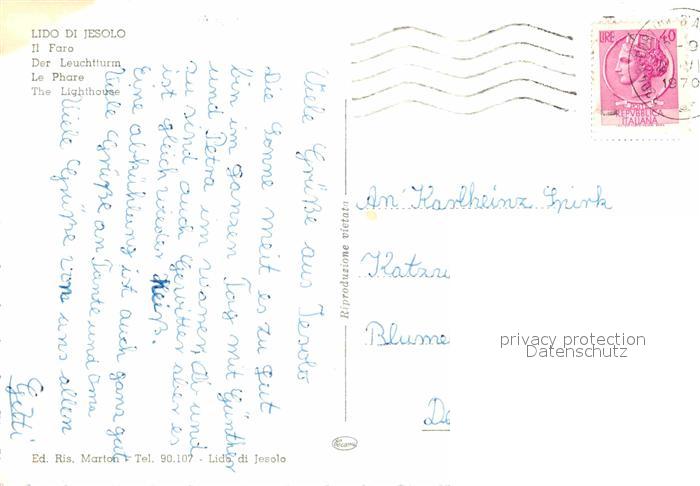 LIDO DI JESOLO
Il Faro
Der Leuchtturm
Le Phare
The Lighthouse
Viele Grüße aus Jesolo
die Sonne meit es zu gut
bin im ganzen Tag mit Günther
und Petra im wasner, ab und
zu sind auch Gewitter aber es
ist gleich wieder heiß.
Eine abkühlung ist auch ganz gut
Viele Grüße an Tante und oma
Viele Grüße von uns allen
Getti
Ed. Ris. Marton - Tel. 90.107 - Lido di Jesolo
Riproduzione vietata
LIRE 40
REPVBBLICA
ITALIANA
1970
An Karlheinz
Katzw
Blume
De
privacy protection
Datenschutz